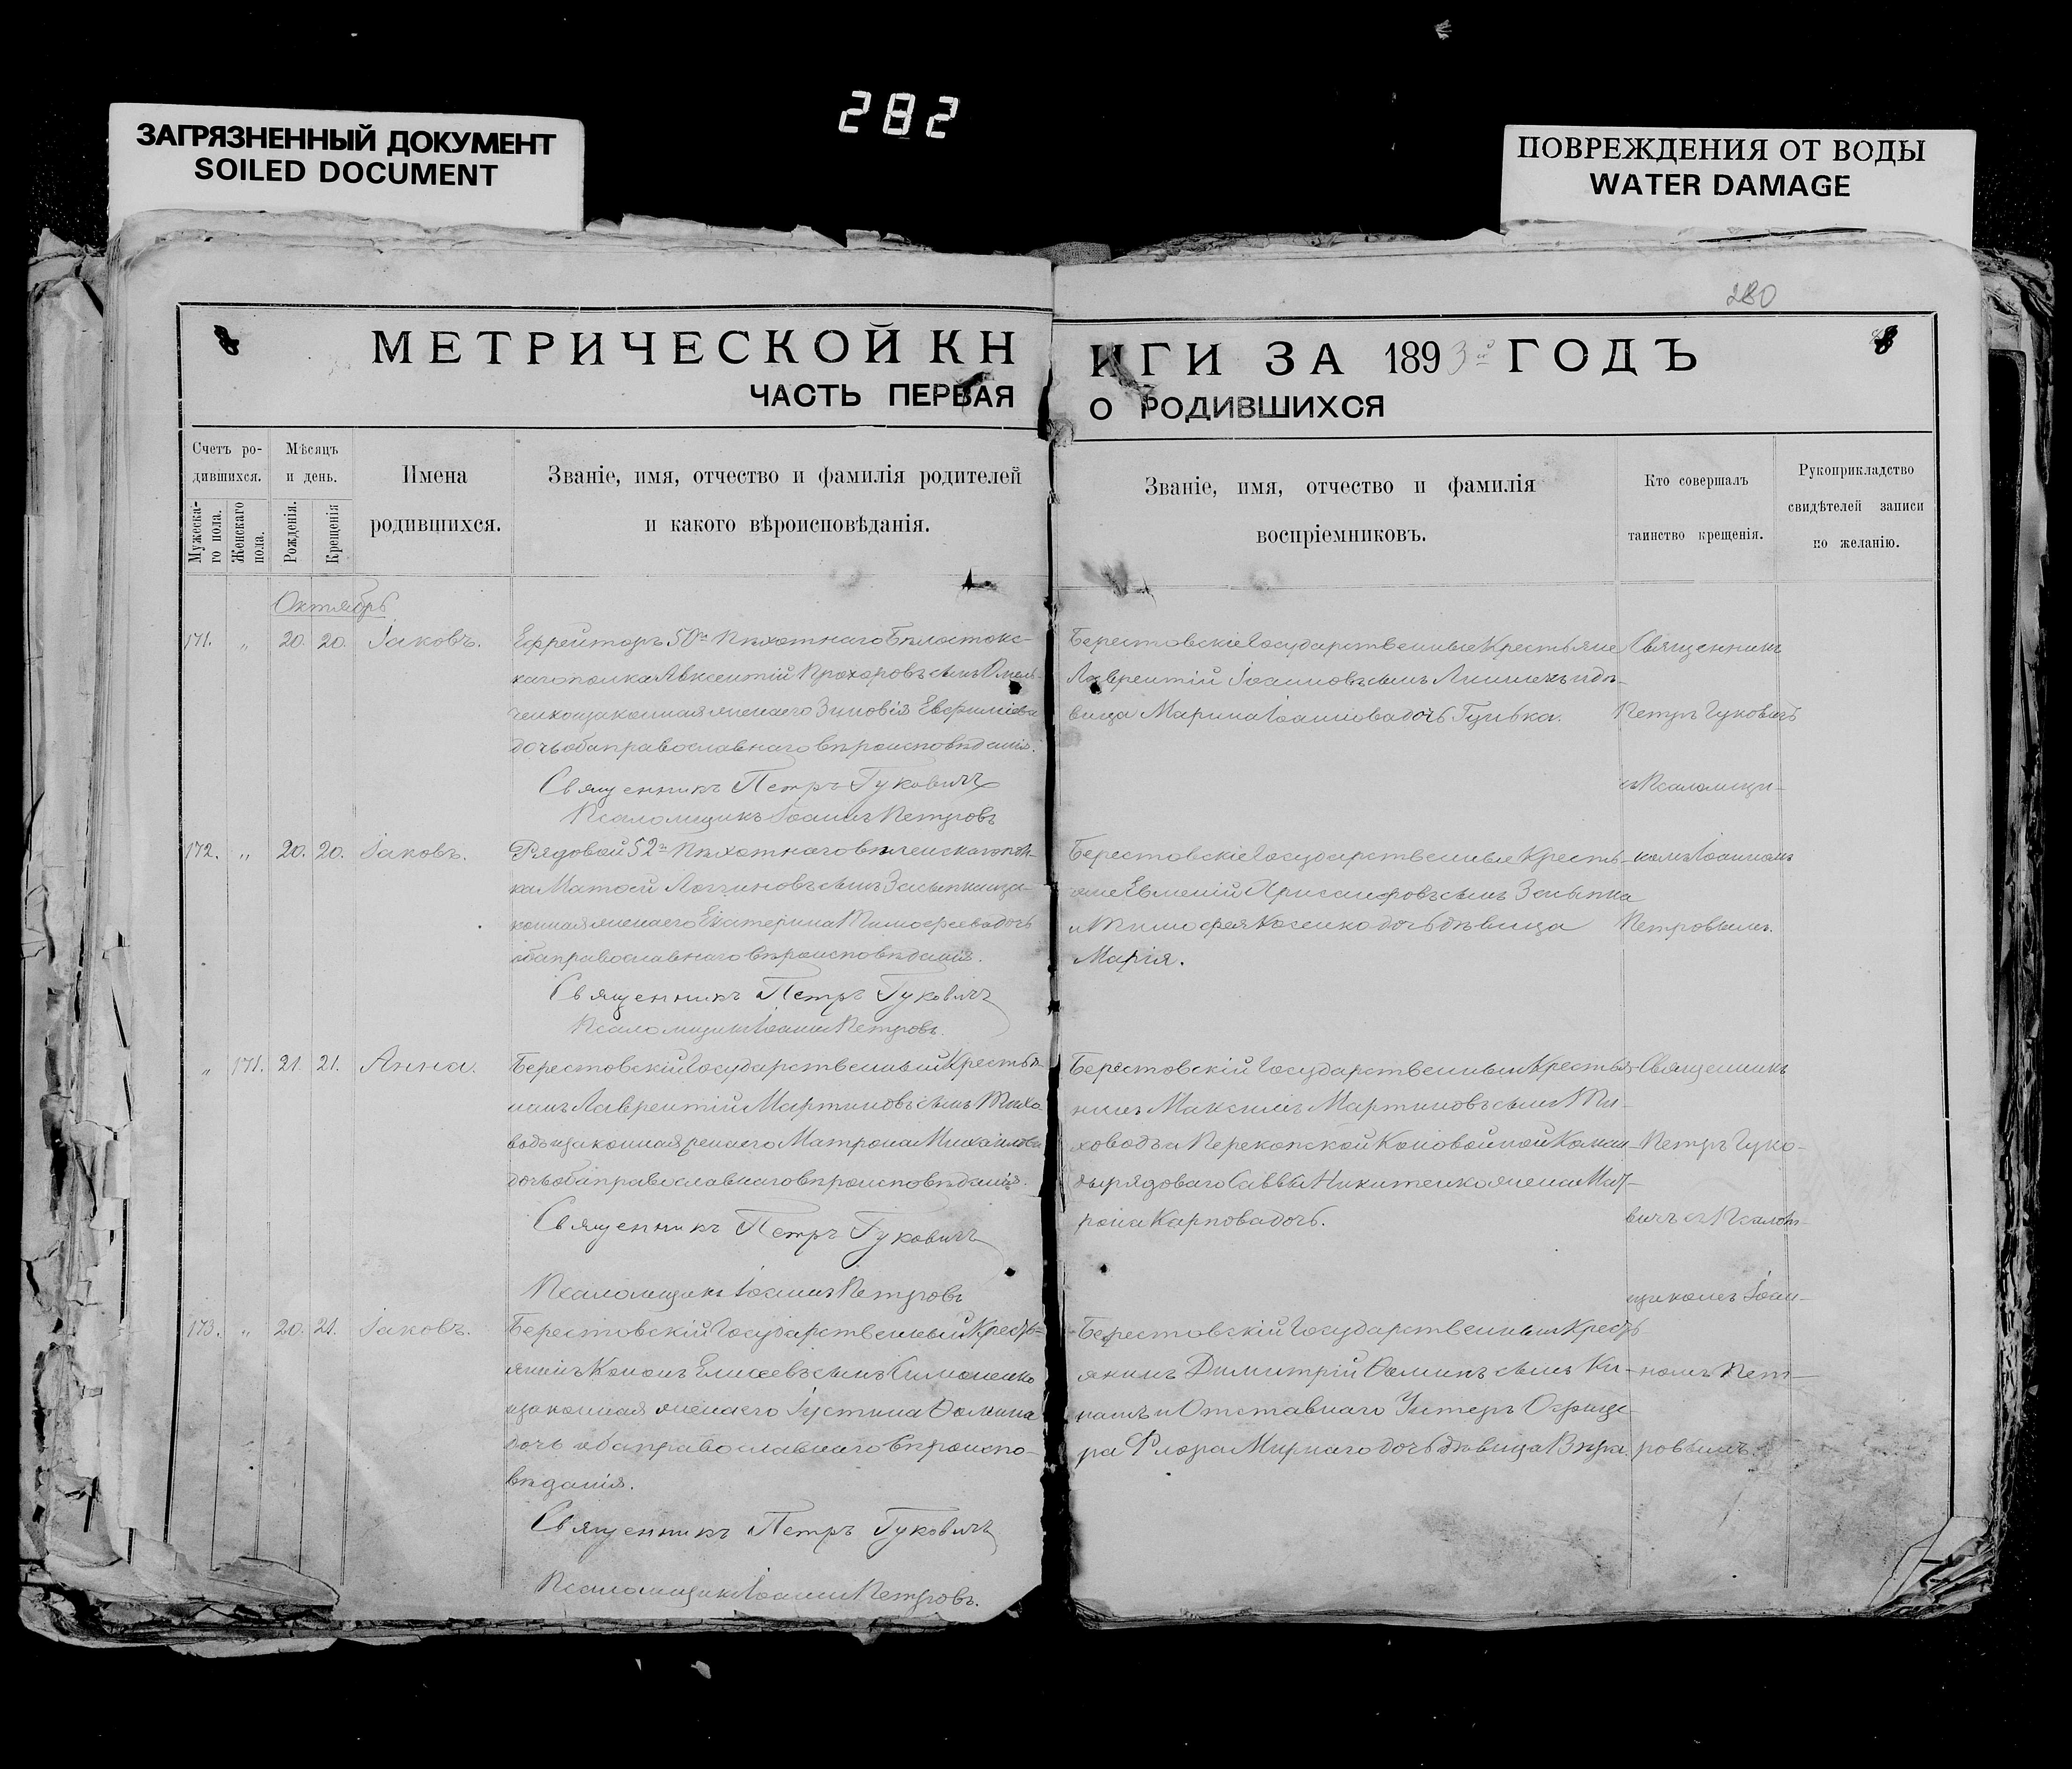 282
ЗАГРЯЗНЕННЫЙ ДОКУМЕНТ
SOILED DOCUMENT
ПОВРЕЖДЕНИЯ ОТ ВОДЫ
WATER DAMAGE
280
МЕТРИЧЕСКОЙ КН
ИГИ ЗА 1893й ГОДЪ
ЧАСТЬ ПЕРВАЯ
О РОДИВШИХСЯ
Счетъ ро-
дившихся.
Мужеска-
го пола.
Женскаго
пола.
Мѣсяцъ
и день.
Рожденія.
Крещенія
Имена
родившихся.
Званіе, имя, отчество и фамилія родителей
и какого вѣроисповѣданія.
Званіе, имя, отчество и фамилія
воспріемниковъ.
Кто совершалъ
таинство крещенія.
Рукоприкладство
свидѣтелей записи
по желанію.
Октябрь
171. " 20. 20. Іаковъ.
Ефрейторъ 50го Пѣхотнаго Бѣлостокс-
каго полка Авксентій Прохоровъ сынъ Омель-
ченко и законная жена его Зиновія Евфиміева
дочь оба православнаго вѣроисповѣданія.
Священникъ Петръ Гуковичъ
Псаломщикъ Іоаннъ Петровъ
Берестовскіе Государственные Крестьяне
Лаврентій Іоанновъ сынъ и дѣ-
вица Марина Іоаннова дочь Гунька.
Священникъ
Петръ Гуковичъ
съ Псаломщи-
172. " 20. 20. Іаковъ.
Рядовой 52го Пѣхотнаго Виленскаго пол-
ка Матѳей Логгиновъ сынъ Засыпка и за-
конная жена его Екатерина Тимофеева дочь
оба православнаго вѣроисповѣданія.
Священникъ Петръ Гуковичъ
Псаломщикъ Іоаннъ Петровъ.
Берестовскіе Государственные Кресть-
яне Евменій Хрисанфовъ сынъ Засыпка
и Тимофея дочь дѣвица
Марія.
комъ Іоанномъ
Петровымъ.
" 171. 21. 21. Анна.
Берестовскій Государственный Крестья-
нинъ Лаврентій Мартиновъ сынъ Тихо-
водъ и законная жена его Матрона Михайлова
дочь оба православнаго вѣроисповѣданія.
Священникъ Петръ Гуковичъ
Псаломщикъ Іоаннъ Петровъ
Берестовскій Государственный Крестья-
нинъ Максимъ Мартиновъ сынъ Ти-
ховодъ и Перекопской Конвойной Коман-
ды рядоваго Саввы Никитенко жена Мат-
рона Карпова дочь.
Священникъ
Петръ Гуко-
вичъ съ Псалом-
щикомъ Іоан-
173. " 20. 21. Іаковъ.
Берестовскій Государственный Кресть-
янинъ Кононъ Елисеевъ сынъ Симоненко
и законная жена его Іустина Ѳомина
дочь оба православнаго вѣроиспо-
вѣданія.
Священникъ Петръ Гуковичъ
Псаломщикъ Іоаннъ Петровъ.
Берестовскій Государственный Кресть
янинъ Димитрій Ѳоминъ сынъ Ки-
и Отставнаго Унтеръ Офице-
ра Флора Мирнаго дочь дѣвица Вѣра.
номъ Пет-
ровымъ.